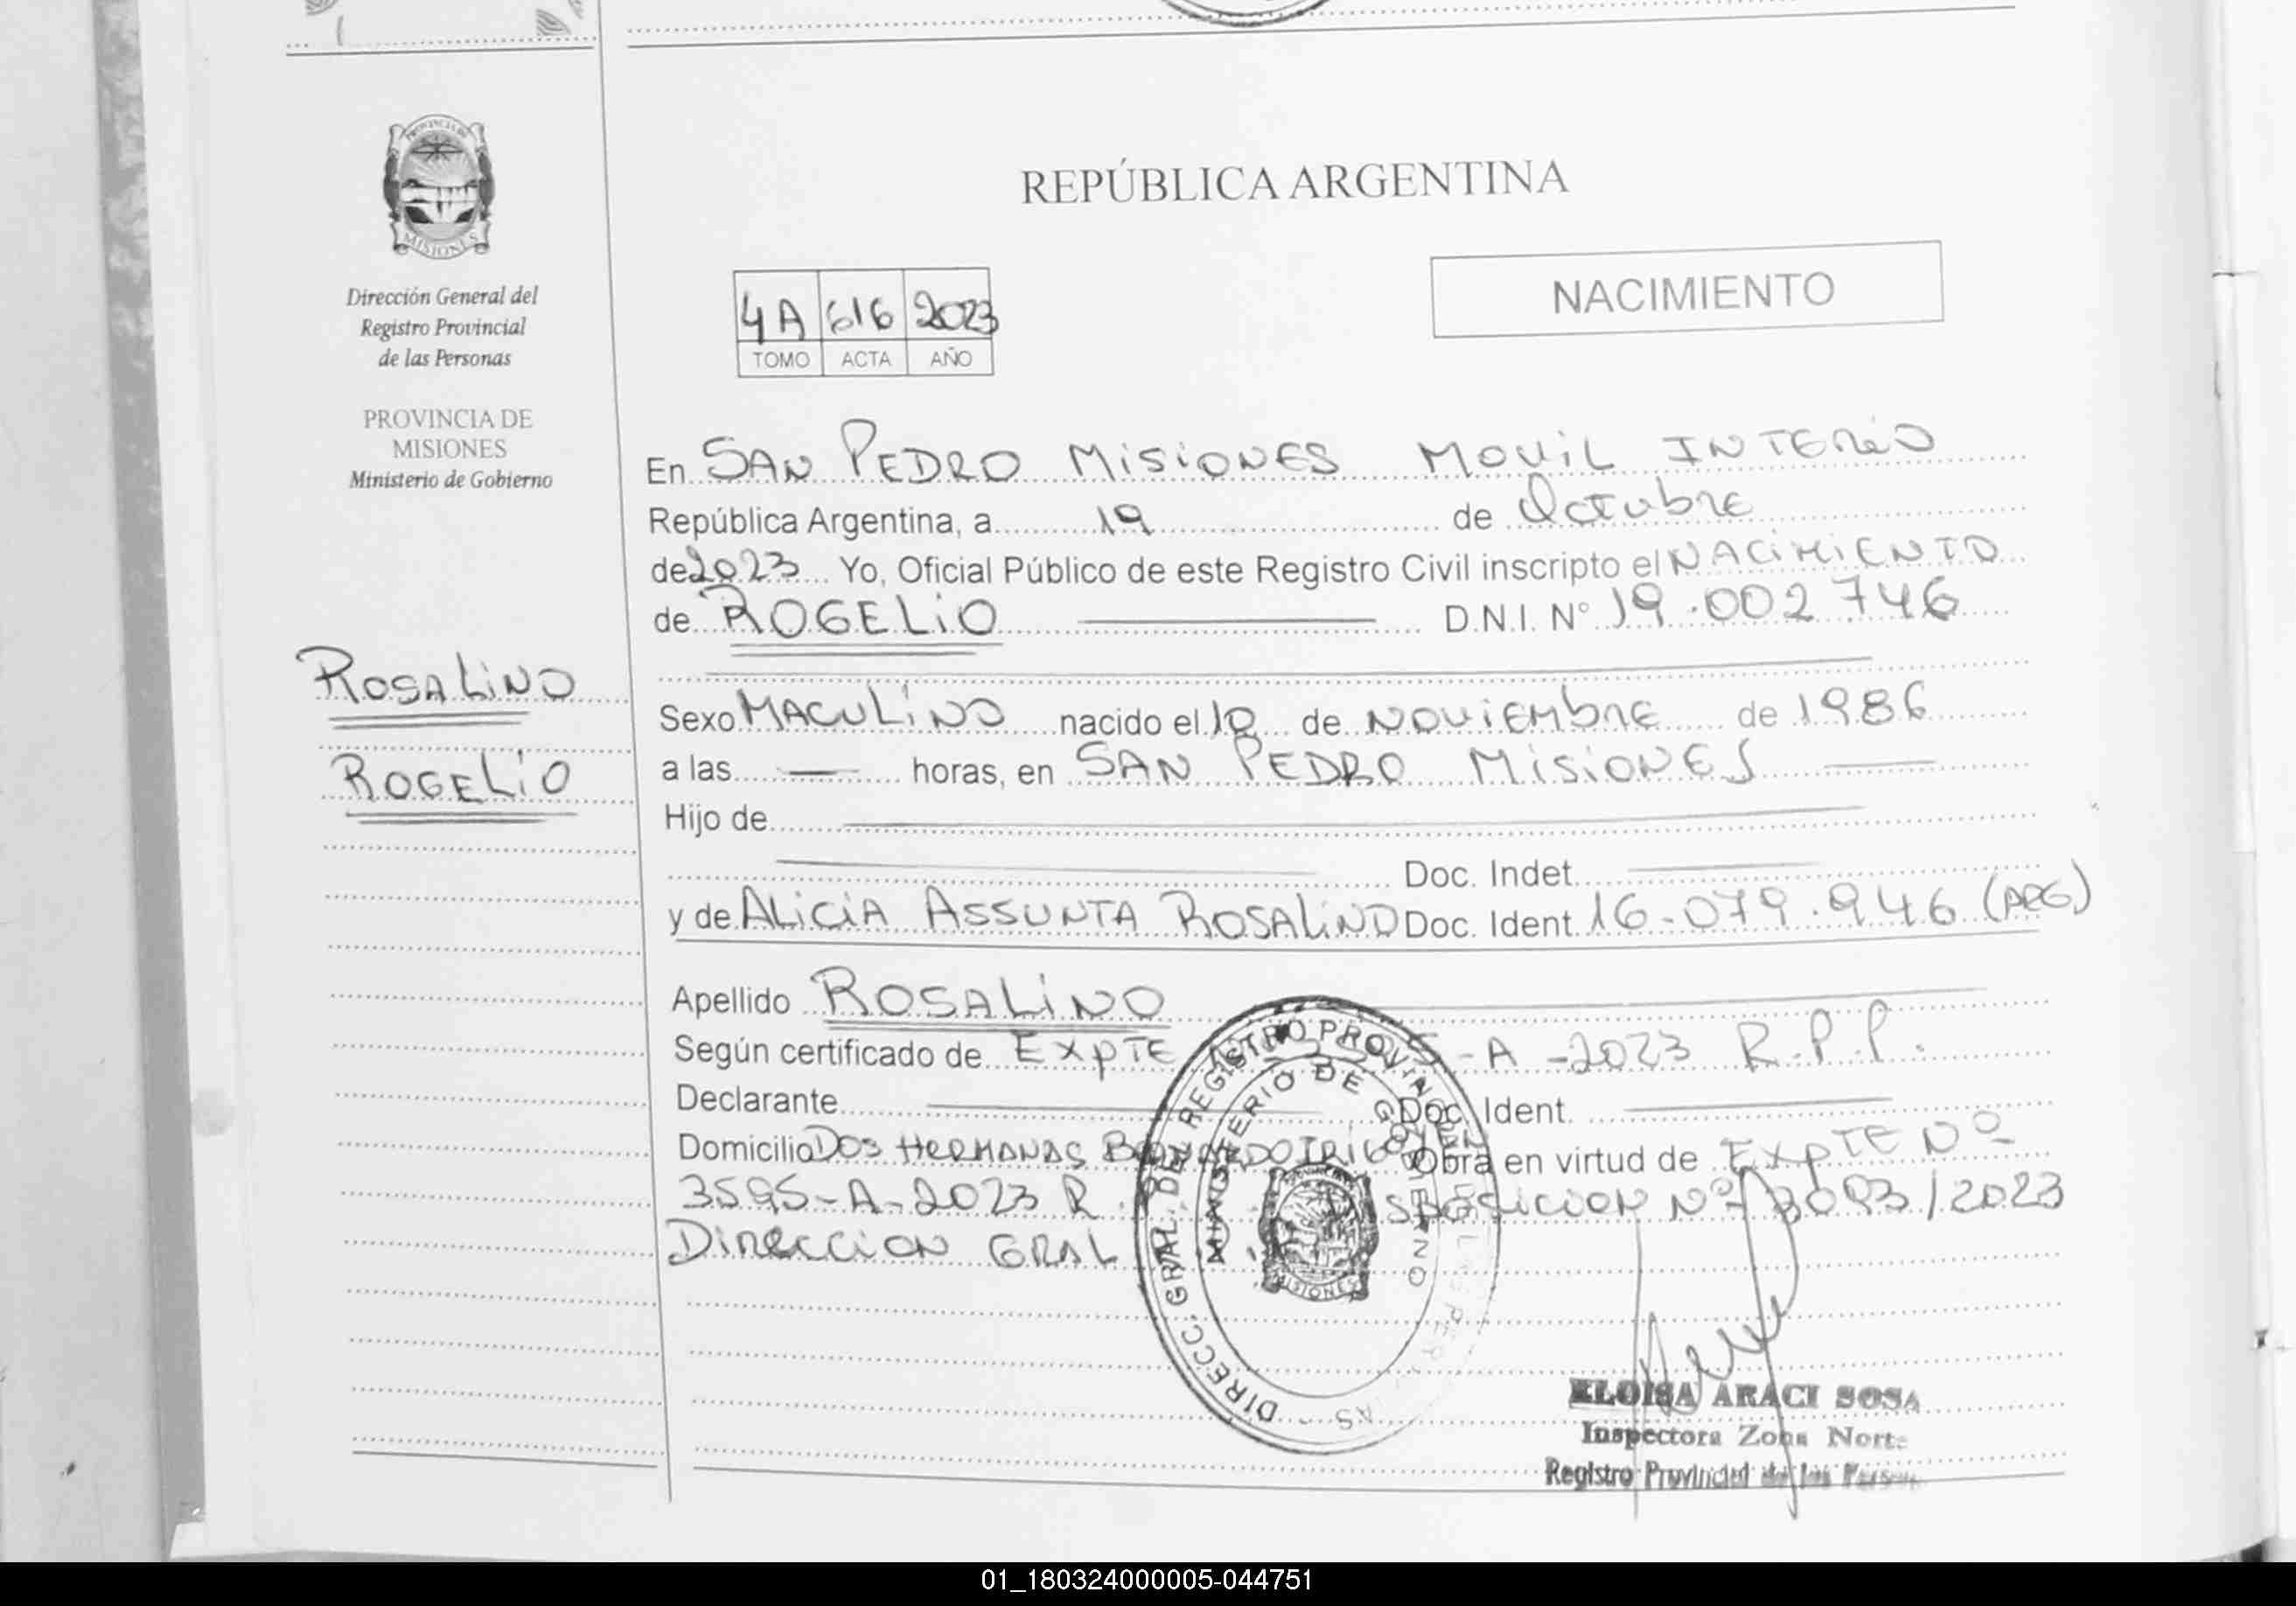 PROVINCIA DE
MISIONES
Dirección General del
Registro Provincial
de las Personas
PROVINCIA DE
MISIONES
Ministerio de Gobierno
ROSALINO
ROGELIO
REPÚBLICA ARGENTINA
NACIMIENTO
4A 616 2023
TOMO ACTA AÑO
En SAN PEDRO MISIONES MOVIL INTERIO
República Argentina, a 19 de Octubre
de 2023 Yo, Oficial Público de este Registro Civil inscripto el NACIMIENTO
de ROGELIO D.N.I. Nº 19.002746
Sexo MACULINO nacido el de NOVIEMBRE de 1986
a las — horas, en SAN PEDRO MISIONES
Hijo de
Doc. Indet.
y de ALICIA ASSUNTA ROSALINO Doc. Ident. 16.079.946 (ARG)
Apellido ROSALINO
Según certificado de EXPTE -A-2023 R.P.P.
Declarante Doc. Ident.
Domicilio DOS HERMANAS Obra en virtud de EXPTE Nº
3595-A-2023 R Nº 3093/2023
DIRECCION GRAL
DIRECC. GRAL. DEL REGISTRO PROVIN
MINISTERIO DE GOBIERNO
MISIONES
ELOISA ARACI SOSA
Inspectora Zona Norte
Registro Provincial de las Person
01_180324000005-044751